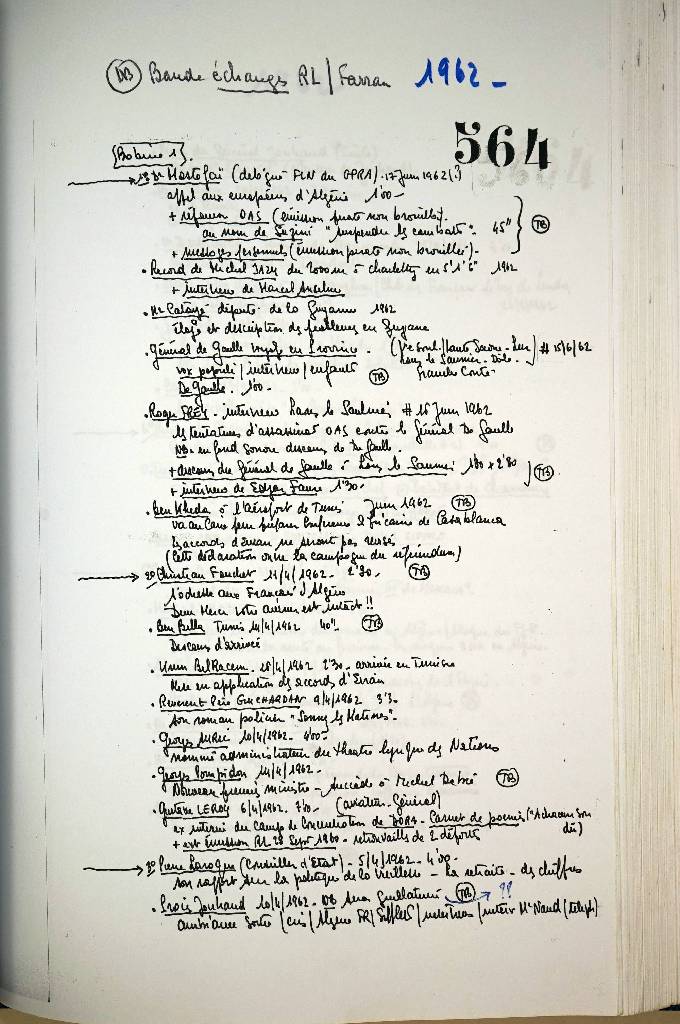 DB Bande échanges RL / Farran 1962 -
564
Bobine 1
Mr Mostefaï (délégué FLN au GPRA). 17 Juin 1962 (?)
appel aux européens d'Algérie 1'00 -
+ réponse OAS (émission pirate non brouillée).
au nom de Susini "suspendre les combats". 45" TB
+ messages personnels (émission pirate non brouillée) -
. Record de Michel JAZY du 2000 m à charletty en 5'1"6 1962
+ interview de Marcel Anselme
. Mr Catayé député de la Guyane 1962
éloge et description des problèmes en Guyane
. Général de Gaulle voyage en Province. (Vesoul / Haute Saone - Lure # 15/6/62
Lons le Saunier - Dôle.
vox populi / interview / enfants TB Franche Comté
De Gaulle. 1'00 -
. Roger FREY - interview Lons le Saunier # 16 Juin 1962
les tentatives d'assassinat OAS contre le Général De Gaulle
NB. en fond sonore discours de De Gaulle.
+ discours du Général de Gaulle à Lons le Saunier 1'80 + 2'80 TB
+ interview de Edgar Faure 1'30 -
. Ben Kheda à l'Aéroport de Tunis Juin 1962 TB
va au Caire pour préparer Conférence Africaine de Casablanca
Les accords d'Evian ne seront pas révisés
(Cette déclaration ouvre la campagne du référendum)
Christian Fouchet 11/4/1962 - 2'30 - TB
s'adresse aux Français d'Algérie
Dieu Merci votre avenir est intact !!
. Ben Bella Tunis 14/4/1962 40" TB
Discours d'arrivée
. Krim BelKacem . 28/4/1962 2'30 - arrivée en Tunisie
Mise en application des accords d'Evian
. Reverent Père GUICHARDAN 9/4/1962 3'3 -
son roman policier
. Georges AURIC 10/4/1962 - 4'00 -
nommé administrateur du théatre lyrique des Nations
. Georges Pompidou 14/4/1962 -
Nouveau premier ministre - succède à Michel Debré TB
. Gustave LEROY 6/4/1962 - (aviation - Général)
ex interné du camp de Concentration de DORA - Carnet de poèmes ("A chacun son
dû)
+ ext émission RL 28 Sept 1960 - retrouvailles de 2 déportés
Pierre Laroque (Conseiller d'Etat) - 5/4/1962 - 4'00 -
son rapport sur la politique de la vieillesse - la retraite - des chiffres
. Procès Jouhaud 10/4/1962 - NB sera Guillotiné TB → ??
ambiance sortie / cris / Algérie FR / sifflets / interviews / interv Me Naud (téléph)